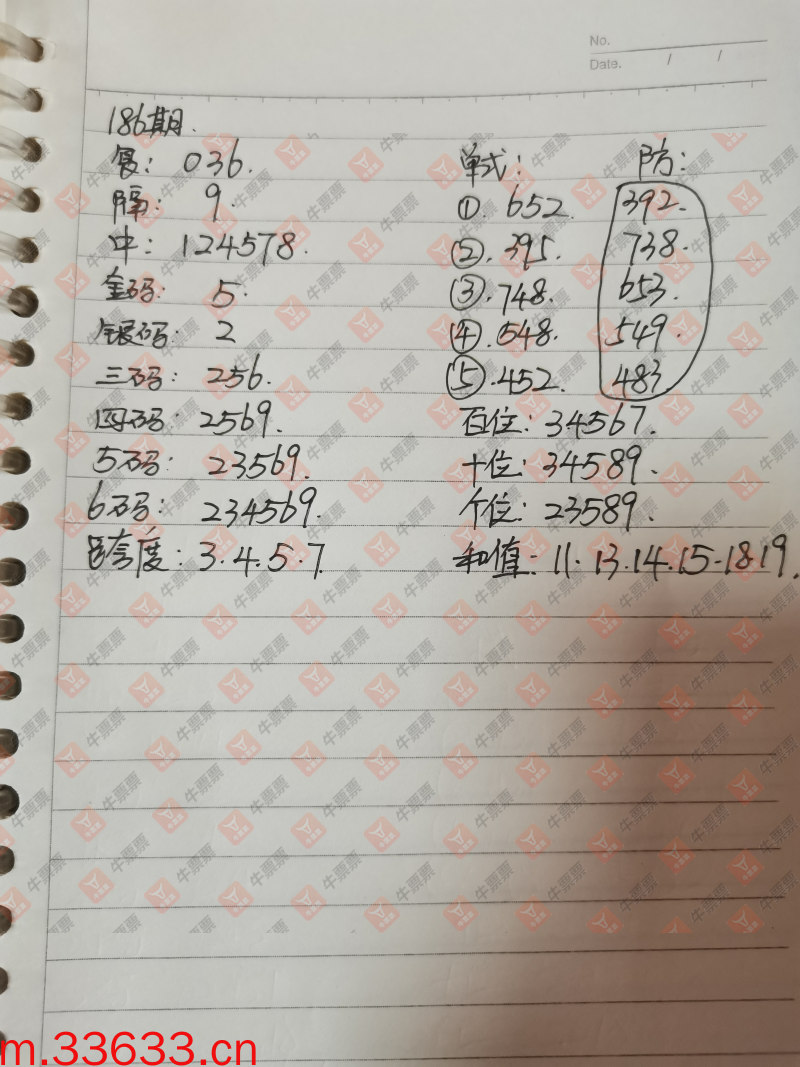 No.
Date. / /
186期.
复: 036. 单式: 防:
隔: 9. ①. 652. 392.
中: 124578. ②. 395. 738.
金码: 5. ③. 748. 653.
银码: 2 ④. 548. 549.
三码: 256. ⑤. 452. 483
四码: 2569. 百位: 34567.
5码: 23569. 十位: 34589.
6码: 234569. 个位: 23589.
跨度: 3.4.5.7. 和值: 11.13.14.15-18.19.
牛票票
m.33633.cn